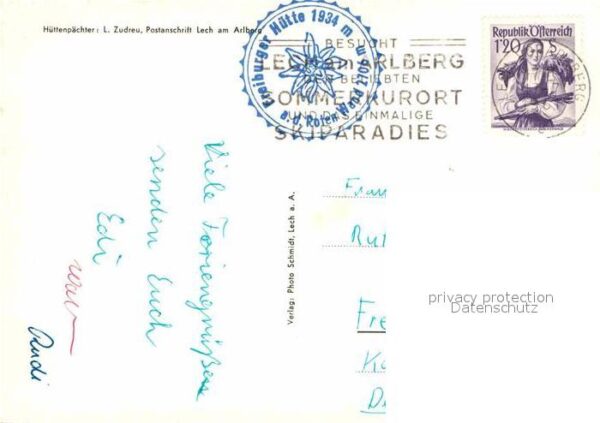 Hüttenpächter: L. Zudreu, Postanschrift Lech am Arlberg
Freiburger Hütte 1934 m
a. d. Roten Wand
BESUCHT
LECH am ARLBERG
DEN BELIEBTEN
SOMMERKURORT
UND DAS EINMALIGE
SKIPARADIES
Republik Österreich
1'20 S
Viele Feriengrüße
senden Euch
Edi
Rudi
Verlag: Photo Schmidt, Lech a. A.
Frau
Fre
privacy protection
Datenschutz